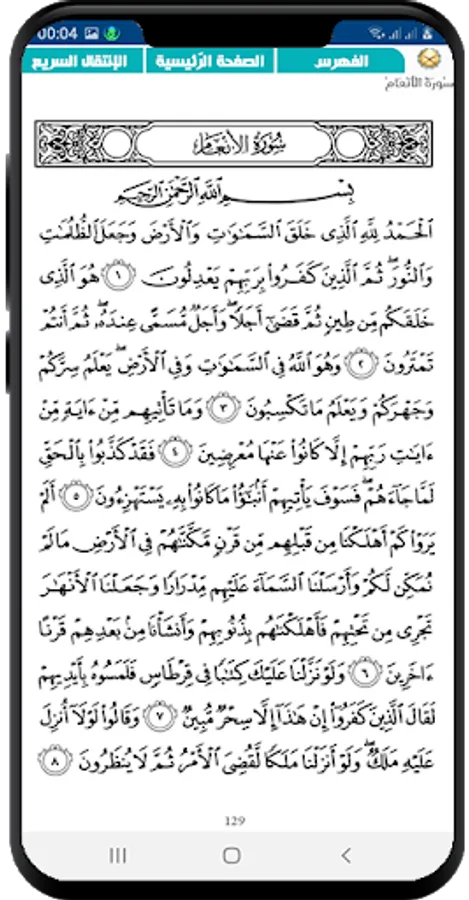 00:04
الفهرس الصفحة الرئيسية الإنتقال السريع
سورة الأنعام
سُورَةُ الأَنْعَام
بِسْمِ اللَّهِ الرَّحْمَٰنِ الرَّحِيمِ
الْحَمْدُ لِلَّهِ الَّذِي خَلَقَ السَّمَٰوَٰتِ وَالْأَرْضَ وَجَعَلَ الظُّلُمَٰتِ
وَالنُّورَ ۖ ثُمَّ الَّذِينَ كَفَرُوا بِرَبِّهِمْ يَعْدِلُونَ ١ هُوَ الَّذِي
خَلَقَكُم مِّن طِينٍ ثُمَّ قَضَىٰٓ أَجَلًا ۖ وَأَجَلٌ مُّسَمًّى عِندَهُۥ ۖ ثُمَّ أَنتُمْ
تَمْتَرُونَ ٢ وَهُوَ اللَّهُ فِي السَّمَٰوَٰتِ وَفِي الْأَرْضِ ۖ يَعْلَمُ سِرَّكُمْ
وَجَهْرَكُمْ وَيَعْلَمُ مَا تَكْسِبُونَ ٣ وَمَا تَأْتِيهِم مِّنْ ءَايَةٍ مِّنْ
ءَايَٰتِ رَبِّهِمْ إِلَّا كَانُوا عَنْهَا مُعْرِضِينَ ٤ فَقَدْ كَذَّبُوا بِالْحَقِّ
لَمَّا جَآءَهُمْ ۖ فَسَوْفَ يَأْتِيهِمْ أَنۢبَٰٓؤُا مَا كَانُوا بِهِۦ يَسْتَهْزِءُونَ ٥ أَلَمْ
يَرَوْا كَمْ أَهْلَكْنَا مِن قَبْلِهِم مِّن قَرْنٍ مَّكَّنَّٰهُمْ فِي الْأَرْضِ مَا لَمْ
نُمَكِّن لَّكُمْ وَأَرْسَلْنَا السَّمَآءَ عَلَيْهِم مِّدْرَارًا وَجَعَلْنَا الْأَنْهَٰرَ
تَجْرِي مِن تَحْتِهِمْ فَأَهْلَكْنَٰهُم بِذُنُوبِهِمْ وَأَنشَأْنَا مِنۢ بَعْدِهِمْ قَرْنًا
ءَاخَرِينَ ٦ وَلَوْ نَزَّلْنَا عَلَيْكَ كِتَٰبًا فِي قِرْطَاسٍ فَلَمَسُوهُ بِأَيْدِيهِمْ
لَقَالَ الَّذِينَ كَفَرُوا إِنْ هَٰذَآ إِلَّا سِحْرٌ مُّبِينٌ ٧ وَقَالُوا لَوْلَآ أُنزِلَ
عَلَيْهِ مَلَكٌ ۖ وَلَوْ أَنزَلْنَا مَلَكًا لَّقُضِيَ الْأَمْرُ ثُمَّ لَا يُنظَرُونَ ٨
129